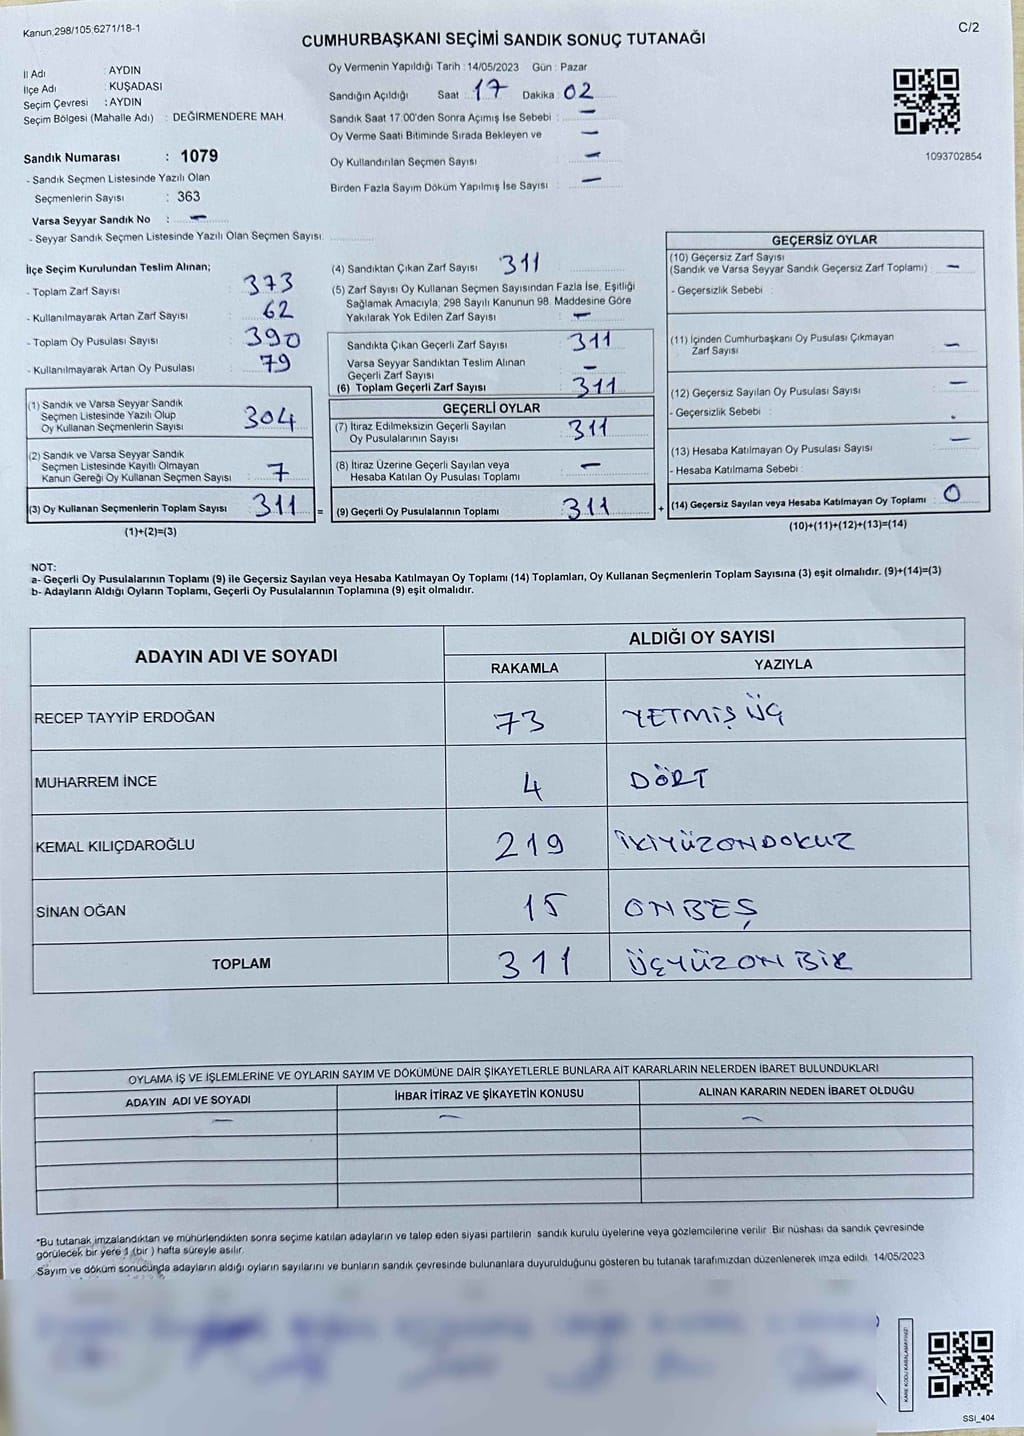 Kanun,298/105,6271/18-1
C/2
CUMHURBAŞKANI SEÇİMİ SANDIK SONUÇ TUTANAĞI
İl Adı : AYDIN
İlçe Adı : KUŞADASI
Seçim Çevresi : AYDIN
Seçim Bölgesi (Mahalle Adı) : DEĞİRMENDERE MAH.
Oy Vermenin Yapıldığı Tarih : 14/05/2023 Gün : Pazar
Sandığın Açıldığı Saat : 17 Dakika : 02
Sandık Saat 17.00'den Sonra Açımış İse Sebebi : -
Oy Verme Saati Bitiminde Sırada Bekleyen ve -
Oy Kullandırılan Seçmen Sayısı -
Birden Fazla Sayım Döküm Yapılmış İse Sayısı : -
1093702854
Sandık Numarası : 1079
- Sandık Seçmen Listesinde Yazılı Olan
Seçmenlerin Sayısı : 363
Varsa Seyyar Sandık No : -
- Seyyar Sandık Seçmen Listesinde Yazılı Olan Seçmen Sayısı:
İlçe Seçim Kurulundan Teslim Alınan;
- Toplam Zarf Sayısı : 373
- Kullanılmayarak Artan Zarf Sayısı : 62
- Toplam Oy Pusulası Sayısı : 390
- Kullanılmayarak Artan Oy Pusulası : 79
(1) Sandık ve Varsa Seyyar Sandık
Seçmen Listesinde Yazılı Olup
Oy Kullanan Seçmenlerin Sayısı 304
(2) Sandık ve Varsa Seyyar Sandık
Seçmen Listesinde Kayıtlı Olmayan
Kanun Gereği Oy Kullanan Seçmen Sayısı 7
(3) Oy Kullanan Seçmenlerin Toplam Sayısı 311 =
(1)+(2)=(3)
(4) Sandıktan Çıkan Zarf Sayısı 311
(5) Zarf Sayısı Oy Kullanan Seçmen Sayısından Fazla İse, Eşitliği
Sağlamak Amacıyla, 298 Sayılı Kanunun 98. Maddesine Göre
Yakılarak Yok Edilen Zarf Sayısı -
Sandıkta Çıkan Geçerli Zarf Sayısı 311
Varsa Seyyar Sandıktan Teslim Alınan
Geçerli Zarf Sayısı -
(6) Toplam Geçerli Zarf Sayısı 311
GEÇERLİ OYLAR
(7) İtiraz Edilmeksizin Geçerli Sayılan
Oy Pusulalarının Sayısı 311
(8) İtiraz Üzerine Geçerli Sayılan veya
Hesaba Katılan Oy Pusulası Toplamı -
(9) Geçerli Oy Pusulalarının Toplamı 311 +
GEÇERSİZ OYLAR
(10) Geçersiz Zarf Sayısı
(Sandık ve Varsa Seyyar Sandık Geçersiz Zarf Toplamı) : -
- Geçersizlik Sebebi :
(11) İçinden Cumhurbaşkanı Oy Pusulası Çıkmayan
Zarf Sayısı -
(12) Geçersiz Sayılan Oy Pusulası Sayısı -
- Geçersizlik Sebebi :
(13) Hesaba Katılmayan Oy Pusulası Sayısı -
- Hesaba Katılmama Sebebi :
(14) Geçersiz Sayılan veya Hesaba Katılmayan Oy Toplamı : 0
(10)+(11)+(12)+(13)=(14)
NOT:
a- Geçerli Oy Pusulalarının Toplamı (9) ile Geçersiz Sayılan veya Hesaba Katılmayan Oy Toplamı (14) Toplamları, Oy Kullanan Seçmenlerin Toplam Sayısına (3) eşit olmalıdır. (9)+(14)=(3)
b- Adayların Aldığı Oyların Toplamı, Geçerli Oy Pusulalarının Toplamına (9) eşit olmalıdır.
ADAYIN ADI VE SOYADI
ALDIĞI OY SAYISI
RAKAMLA YAZIYLA
RECEP TAYYİP ERDOĞAN 73 YETMİŞ ÜÇ
MUHARREM İNCE 4 DÖRT
KEMAL KILIÇDAROĞLU 219 İKİYÜZONDOKUZ
SİNAN OĞAN 15 ONBEŞ
TOPLAM 311 ÜÇYÜZON BİR
OYLAMA İŞ VE İŞLEMLERİNE VE OYLARIN SAYIM VE DÖKÜMÜNE DAİR ŞİKAYETLERLE BUNLARA AİT KARARLARIN NELERDEN İBARET BULUNDUKLARI
ADAYIN ADI VE SOYADI İHBAR İTİRAZ VE ŞİKAYETİN KONUSU ALINAN KARARIN NEDEN İBARET OLDUĞU
- - -
*Bu tutanak imzalandıktan ve mühürlendikten sonra seçime katılan adayların ve talep eden siyasi partilerin sandık kurulu üyelerine veya gözlemcilerine verilir. Bir nüshası da sandık çevresinde
görülecek bir yere 1 (bir ) hafta süreyle asılır.
Sayım ve döküm sonucunda adayların aldığı oyların sayılarını ve bunların sandık çevresinde bulunanlara duyurulduğunu gösteren bu tutanak tarafımızdan düzenlenerek imza edildi. 14/05/2023
KARE KODU KARALAMAYINIZ!
SSI_404